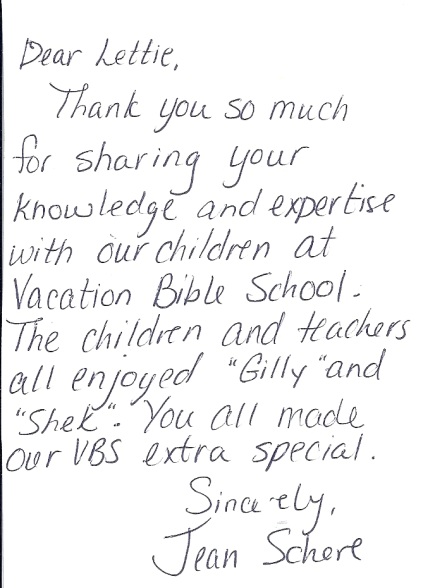 Dear Lettie,
Thank you so much
for sharing your
knowledge and expertise
with our children at
Vacation Bible School.
The children and teachers
all enjoyed "Gilly" and
"Shek". You all made
our VBS extra special.
Sincerely,
Jean Schere